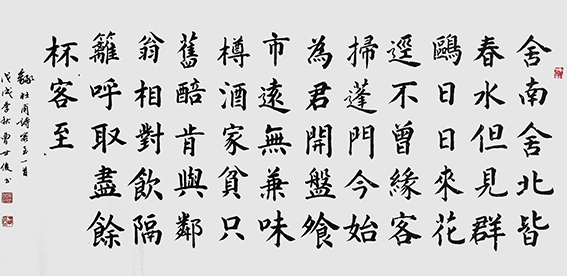 舍南舍北皆
春水但見群
鷗日日來花
逕不曾緣客
掃蓬門今始
為君開盤飱
市遠無兼味
樽酒家貧只
舊醅肯與鄰
翁相對飲隔
籬呼取盡餘
杯客至
錄杜甫詩客至一首
戊戌季秋曹世俊书